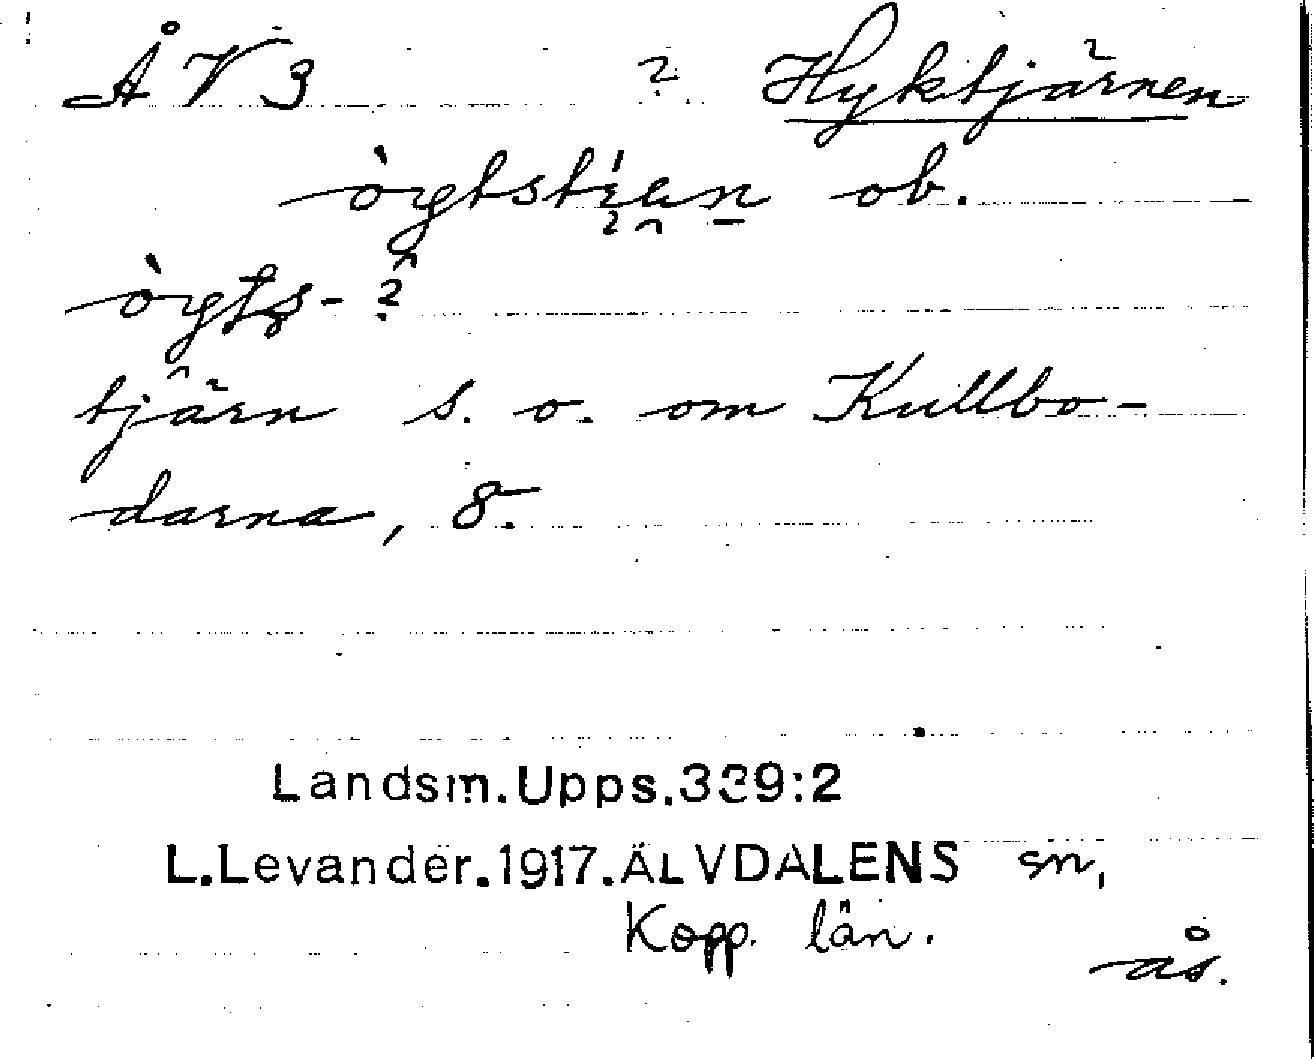 Å V 3 ? Hyktjärnen
ob.
tjärn s. o. om Kullbo-
darna, 8.
Landsm.Upps.339:2
L.Levander.1917.ÄLVDALENS sn,
Kopp. län.
ås.